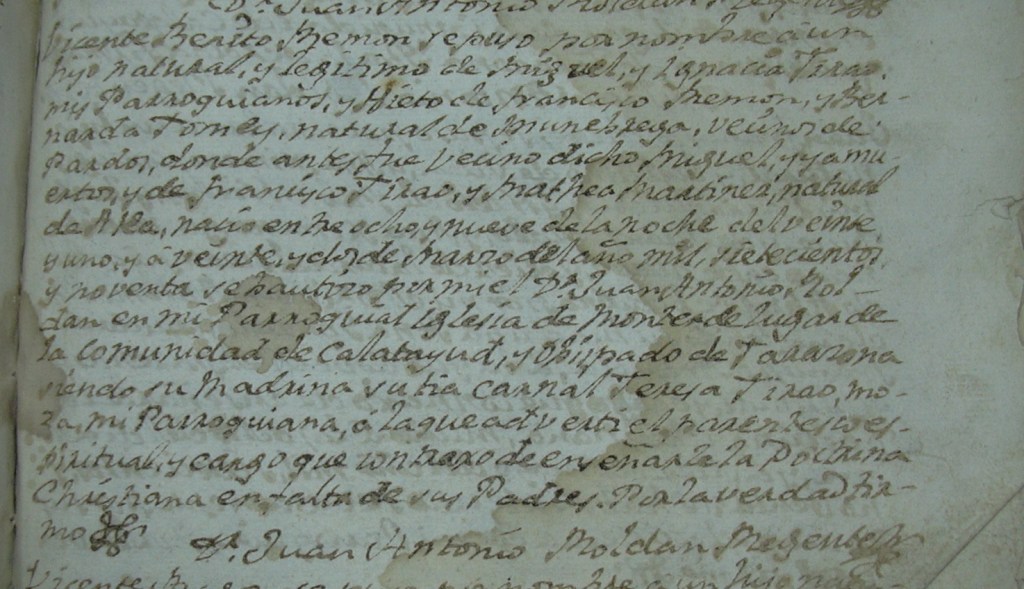 Dn. Juan Antonio Roldan Regente
Vicente Benito Remon se puso por nombre à un
hijo natural, y legitimo de Miguel, y Ignacia Tirao,
mis Parroquianos, y Nieto de Francisco Remon, y Ber-
narda Tomey, natural de Munebrega, vecinos de
Pardos, donde antes fue vecino dicho Miguel, y ya mu-
ertos, y de Francisco Tirao, y Mathea Martinez, natural
de Alea, nacio entre ocho, y nueve de la noche del veinte
y uno, y à veinte, y dos de Marzo del año mil, setecientos,
y noventa se bautizo por mi el Dn. Juan Antonio Rol-
dan en mi Parroquial Iglesia de Monterde lugar de
la Comunidad de Calatayud, y Obispado de Tarazona
siendo su Madrina su tia carnal Teresa Tirao, mo-
za, mi Parroquiana, à la que advertí el parentesco es-
piritual, y cargo que contraxo de enseñarle la Doctrina
Christiana en falta de sus Padres. Por la verdad fir-
mo
Dn. Juan Antonio Roldan Regente
Vicente se puso por nombre a un hijo na